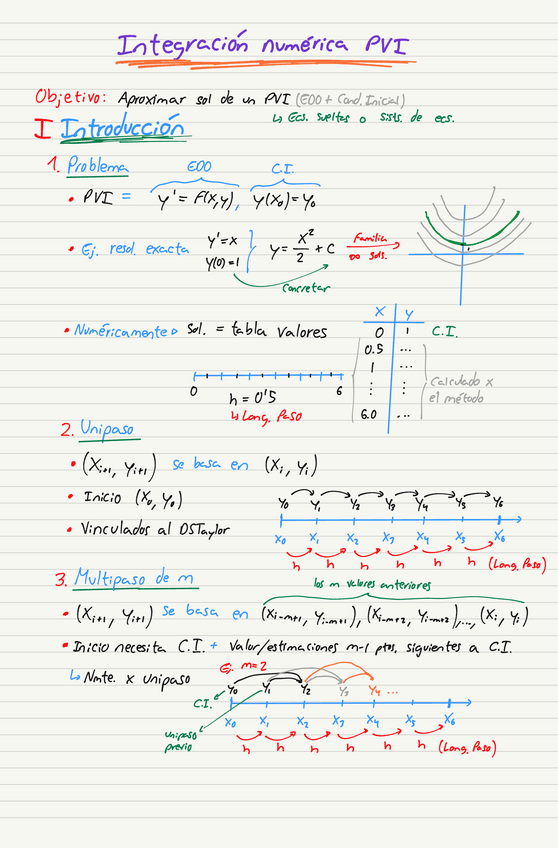 Integración numérica PVI
Objetivo: Aproximar sol de un PVI (EDO + Cond. Inicial)
↳ Ecs. sueltas o sists. de ecs.
I Introducción
1. Problema EDO C.I.
• PVI = y' = F(x,y), y(x₀)=y₀
• Ej. resol. exacta y'=x y(0)=1 } y = x²/2 + C Familia ∞ sols.
Concretar
1
• Numéricamente ▹ Sol. = tabla valores
x y
0 1 C.I.
0.5 ...
1 ...
⋮ ⋮
6.0 ...
Calculado x
el método
0 h = 0'5 6
↳ Long. Paso
2. Unipaso
• (xᵢ₊₁, yᵢ₊₁) se basa en (xᵢ, yᵢ)
• Inicio (x₀, y₀)
• Vinculados al DSTaylor
y₀ y₁ y₂ y₃ y₄ y₅ y₆
x₀ x₁ x₂ x₃ x₄ x₅ x₆
h h h h h h (Long. Paso)
3. Multipaso de m
los m valores anteriores
• (xᵢ₊₁, yᵢ₊₁) se basa en (xᵢ₋ₘ₊₁, yᵢ₋ₘ₊₁), (xᵢ₋ₘ₊₂, yᵢ₋ₘ₊₂),..., (xᵢ, yᵢ)
• Inicio necesita C.I. + Valor/estimaciones m-1 ptos. siguientes a C.I.
↳ Nmte. x unipaso
Ej. m=2
y₀ y₁ y₂ y₃ y₄ ...
C.I.
x₀ x₁ x₂ x₃ x₄ x₅ x₆
unipaso
previo
h h h h h h (Long. Paso)